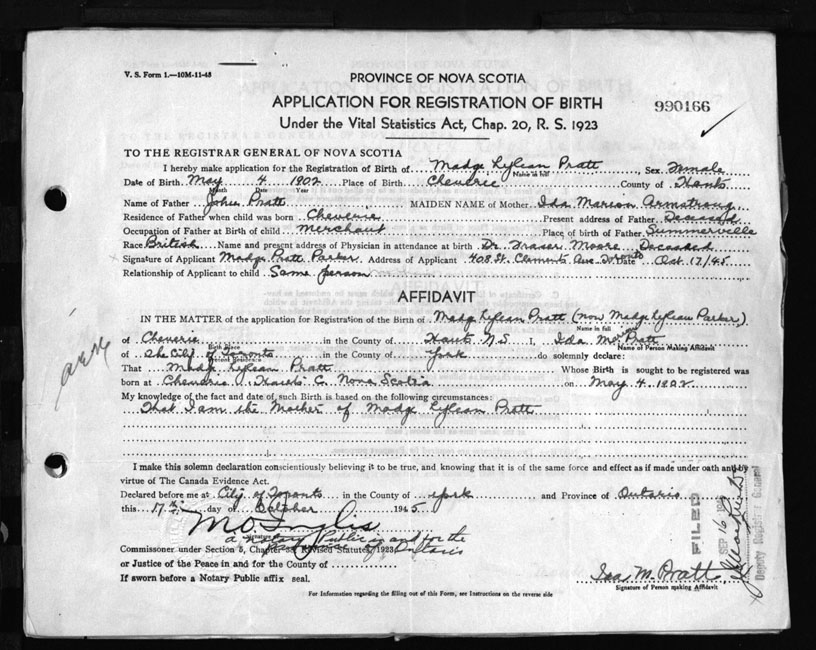 V. S. Form 1.—10M-11-43
PROVINCE OF NOVA SCOTIA
APPLICATION FOR REGISTRATION OF BIRTH
990166
Under the Vital Statistics Act, Chap. 20, R. S. 1923
TO THE REGISTRAR GENERAL OF NOVA SCOTIA
I hereby make application for the Registration of Birth of Madge Lylean Pratt, Sex Female
Name in full
Date of Birth May 4 1902 Place of Birth Cheverie County of Hants
Month Date Year
Name of Father John Pratt MAIDEN NAME of Mother Ida Marion Armstrong
Residence of Father when child was born Cheverie Present address of Father Deceased
Occupation of Father at Birth of child Merchant Place of birth of Father Summerville
Race British Name and present address of Physician in attendance at birth Dr. Fraser Moore Deceased
Signature of Applicant Madge Pratt Parker Address of Applicant 408 St. Clements Ave Toronto Date Oct. 17/45
Relationship of Applicant to child Same person
AFFIDAVIT
IN THE MATTER of the application for Registration of the Birth of Madge Lylean Pratt (now Madge Lylean Parker)
Name in full
of Cheverie in the County of Hants N.S. I, Ida Marion Pratt
Birth Place
Name of Person Making Affidavit
of The City of Toronto in the County of York do solemnly declare:
That Madge Lylean Pratt Whose Birth is sought to be registered was
born at Cheverie, Hants C. Nova Scotia on May 4, 1902
My knowledge of the fact and date of such Birth is based on the following circumstances:
That I am the Mother of Madge Lylean Pratt
I make this solemn declaration conscientiously believing it to be true, and knowing that it is of the same force and effect as if made under oath and by
virtue of The Canada Evidence Act.
Declared before me at City of Toronto in the County of York and Province of Ontario
this 17th day of October 1945
M.O. Inglis
Signature
a Notary Public in and for the
Province of Ontario
Commissioner under Section 5, Chapter 38, Revised Statutes, 1923
or Justice of the Peace in and for the County of
If sworn before a Notary Public affix seal.
Ida M. Pratt
Signature of Person making Affidavit
For Information regarding the filling out of this Form, see Instructions on the reverse side
FILED
SEP 16
Deputy Registrar General